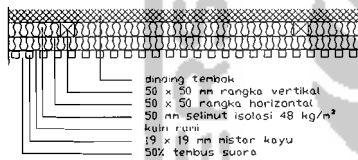 dinding tembok
50 x 50 mm rangka vertikal
50 x 50 rangka horizontal
50 mm selimut isolasi 48 kg/m³
kain rami
19 x 19 mm mistar kayu
50% tembus suara